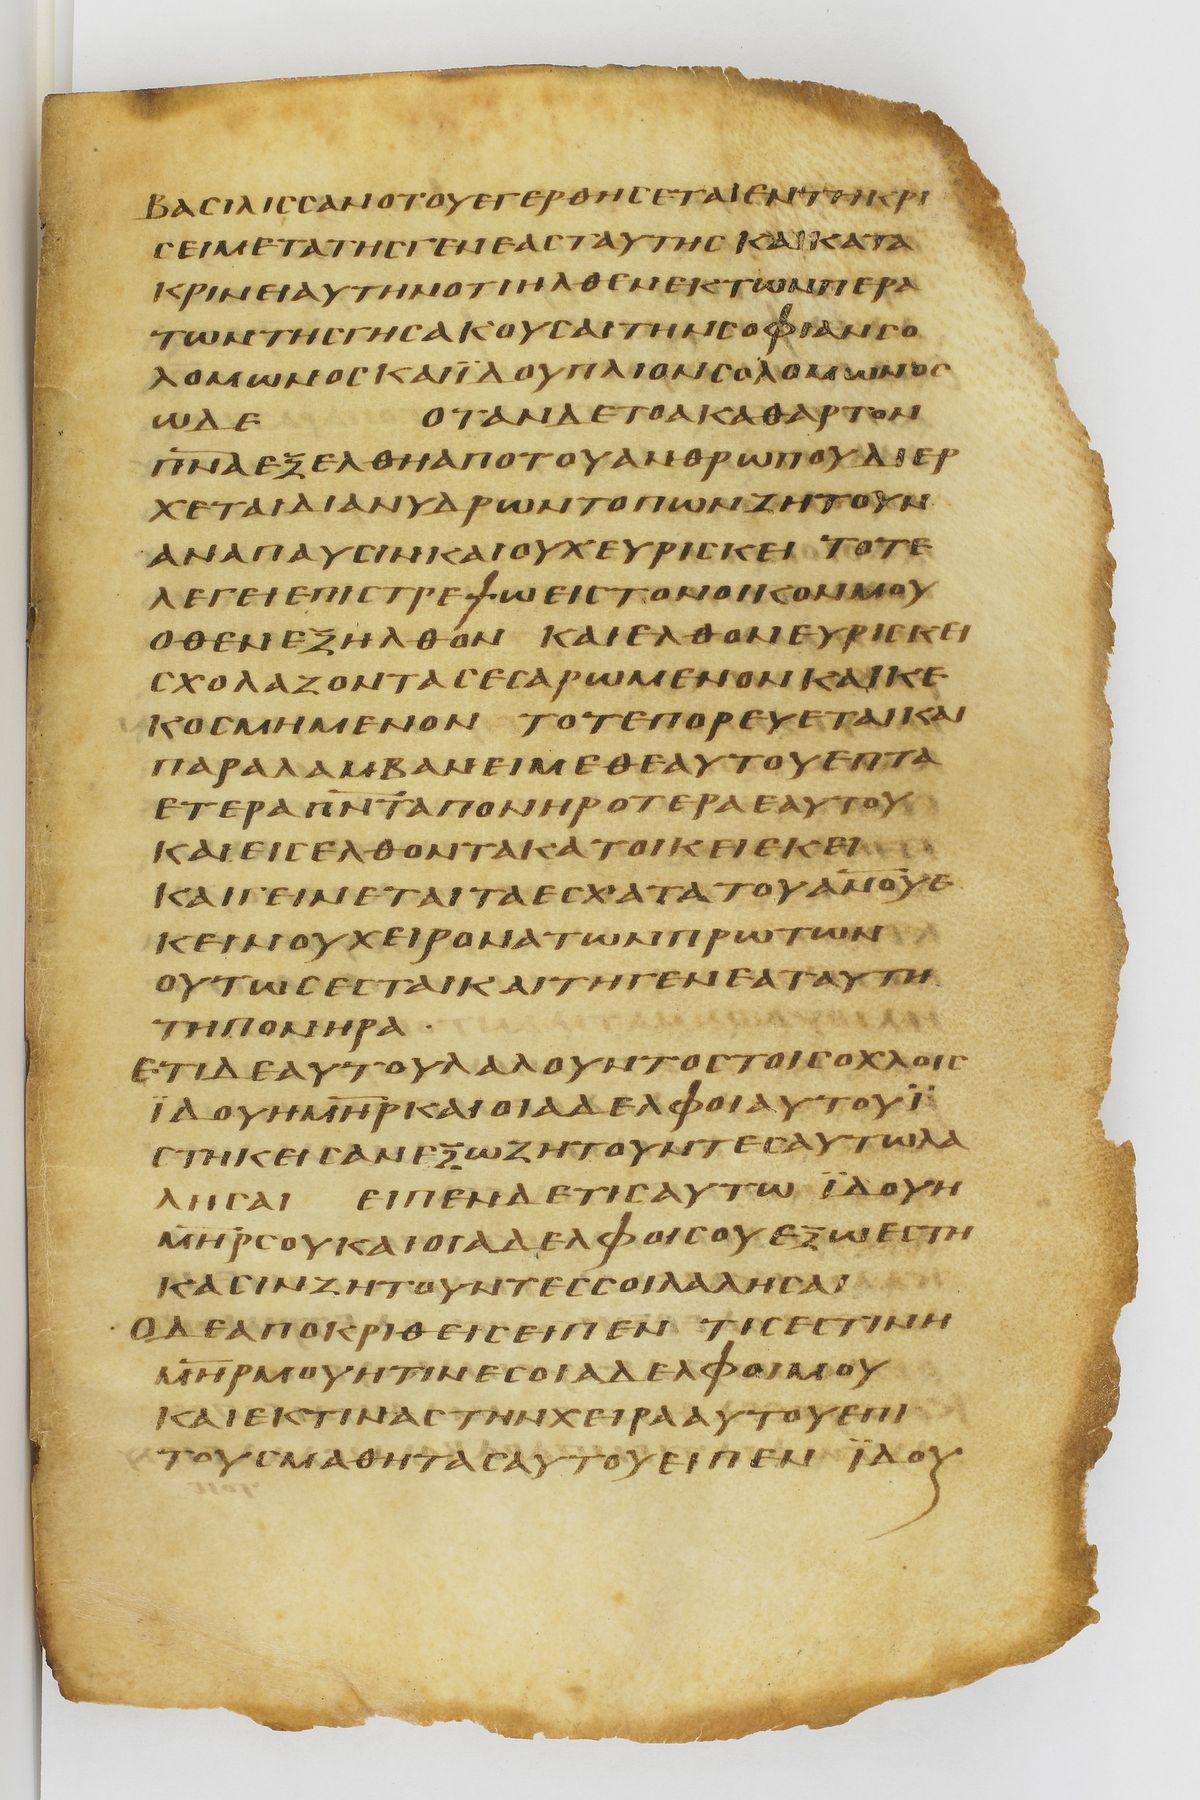 ΒΑCΙΛΙCCΑΝΟΤΟΥΕΓΕΡΘΗCΕΤΑΙΕΝΤΗΚΡΙ
CΕΙΜΕΤΑΤΗCΓΕΝΕΑCΤΑΥΤΗCΚΑΙΚΑΤΑ
ΚΡΙΝΕΙΑΥΤΗΝΟΤΙΗΛΘΕΝΕΚΤΩΝΠΕΡΑ
ΤΩΝΤΗCΓΗCΑΚΟΥCΑΙΤΗΝCΟΦΙΑΝCΟ
ΛΟΜΩΝΟCΚΑΙΪΔΟΥΠΛΙΟΝCΟΛΟΜΩΝΟC
ΩΔΕ ΟΤΑΝΔΕΤΟΑΚΑΘΑΡΤΟΝ
Π̅Ν̅ΑΕΞΕΛΘΗΑΠΟΤΟΥΑΝΘΡΩΠΟΥΔΙΕΡ
ΧΕΤΑΙΔΙΑΝΥΔΡΩΝΤΟΠΩΝΖΗΤΟΥΝ
ΑΝΑΠΑΥCΙΝΚΑΙΟΥΧΕΥΡΙCΚΕΙ ΤΟΤΕ
ΛΕΓΕΙΕΠΙCΤΡΕΦΩΕΙCΤΟΝΟΙΚΟΝΜΟΥ
ΟΘΕΝΕΞΗΛΘΟΝ ΚΑΙΕΛΘΟΝΕΥΡΙCΚΕΙ
CΧΟΛΑΖΟΝΤΑCΕCΑΡΩΜΕΝΟΝΚΑΙΚΕ
ΚΟCΜΗΜΕΝΟΝ ΤΟΤΕΠΟΡΕΥΕΤΑΙΚΑΙ
ΠΑΡΑΛΑΜΒΑΝΕΙΜΕΘΕΑΥΤΟΥΕΠΤΑ
ΕΤΕΡΑΠ̅Ν̅Τ̅ΑΠΟΝΗΡΟΤΕΡΑΕΑΥΤΟΥ
ΚΑΙΕΙCΕΛΘΟΝΤΑΚΑΤΟΙΚΕΙΕΚΕΙ
ΚΑΙΓΕΙΝΕΤΑΙΤΑΕCΧΑΤΑΤΟΥΑ̅Ν̅Ο̅Υ̅Ε
ΚΕΙΝΟΥΧΕΙΡΟΝΑΤΩΝΠΡΩΤΩΝ
ΟΥΤΩCΕCΤΑΙΚΑΙΤΗΓΕΝΕΑΤΑΥΤΗ
ΤΗΠΟΝΗΡΑ·
ΕΤΙΔΕΑΥΤΟΥΛΑΛΟΥΝΤΟCΤΟΙCΟΧΛΟΙC
ΪΔΟΥΗΜ̅Η̅Ρ̅ΚΑΙΟΙΑΔΕΛΦΟΙΑΥΤΟΥΪ
CΤΗΚΕΙCΑΝΕΞΩΖΗΤΟΥΝΤΕCΑΥΤΩΛΑ
ΛΗCΑΙ ΕΙΠΕΝΔΕΤΙCΑΥΤΩ ΪΔΟΥΗ
Μ̅Η̅Ρ̅CΟΥΚΑΙΟΙΑΔΕΛΦΟΙCΟΥΕΞΩΕCΤΗ
ΚΑCΙΝΖΗΤΟΥΝΤΕCCΟΙΛΑΛΗCΑΙ
·ΟΔΕΑΠΟΚΡΙΘΕΙCΕΙΠΕΝ ΤΙCΕCΤΙΝΗ
Μ̅Η̅Ρ̅ΜΟΥΗΤΙΝΕCΟΙΑΔΕΛΦΟΙΜΟΥ
ΚΑΙΕΚΤΙΝΑCΤΗΝΧΕΙΡΑΑΥΤΟΥΕΠΙ
ΤΟΥCΜΑΘΗΤΑCΑΥΤΟΥΕΙΠΕΝ ΪΔΟΥ